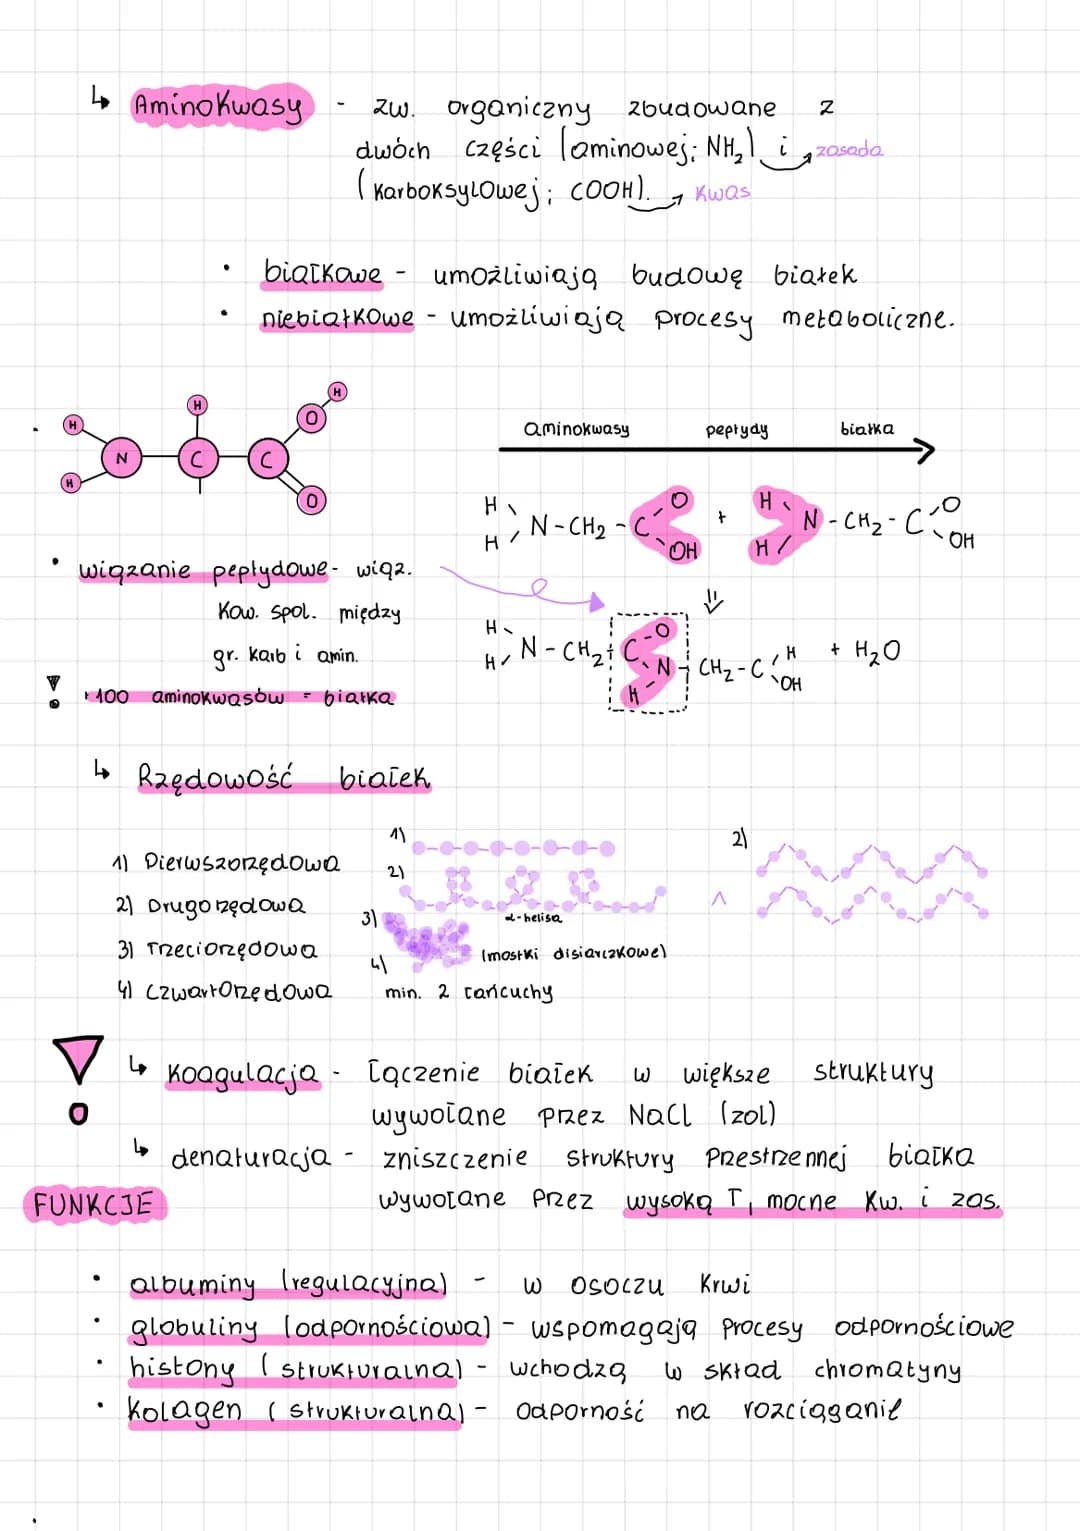 ↳ Aminokwasy - zw. organiczny zbudowane z
dwóch części (aminowej; NH₂) i → zasada
(karboksylowej; COOH). → kwas
• białkowe - umożliwiają budowę białek
• niebiałkowe - umożliwiają procesy metaboliczne.
H H H
H N C C O O
aminokwasy peptydy białka
H H N - CH₂ - C O OH + H H N - CH₂ - C O OH
• wiązanie peptydowe - wiąz.
kow. spol. między
gr. karb i amin.
⇓
H H N - CH₂ C - O N H CH₂ - C H OH + H₂O
! +100 aminokwasów = białka
↳ Rzędowość białek
1) Pierwszorzędowa
2) Drugorzędowa
3) Trzeciorzędowa
4) Czwartorzędowa
1)
2)
2)
α-helisa
3)
(mostki disiarczkowe)
4)
min. 2 łańcuchy
! ↳ Koagulacja - łączenie białek w większe struktury
wywołane przez NaCl (zol)
↳ denaturacja - zniszczenie struktury przestrzennej białka
wywołane przez wysoką T, mocne kw. i zas.
FUNKCJE
• albuminy (regulacyjna) - w osoczu krwi
• globuliny (odpornościowa) - wspomagają procesy odpornościowe
• histony (strukturalna) - wchodzą w skład chromatyny
• kolagen (strukturalna) - odporność na rozciąganie